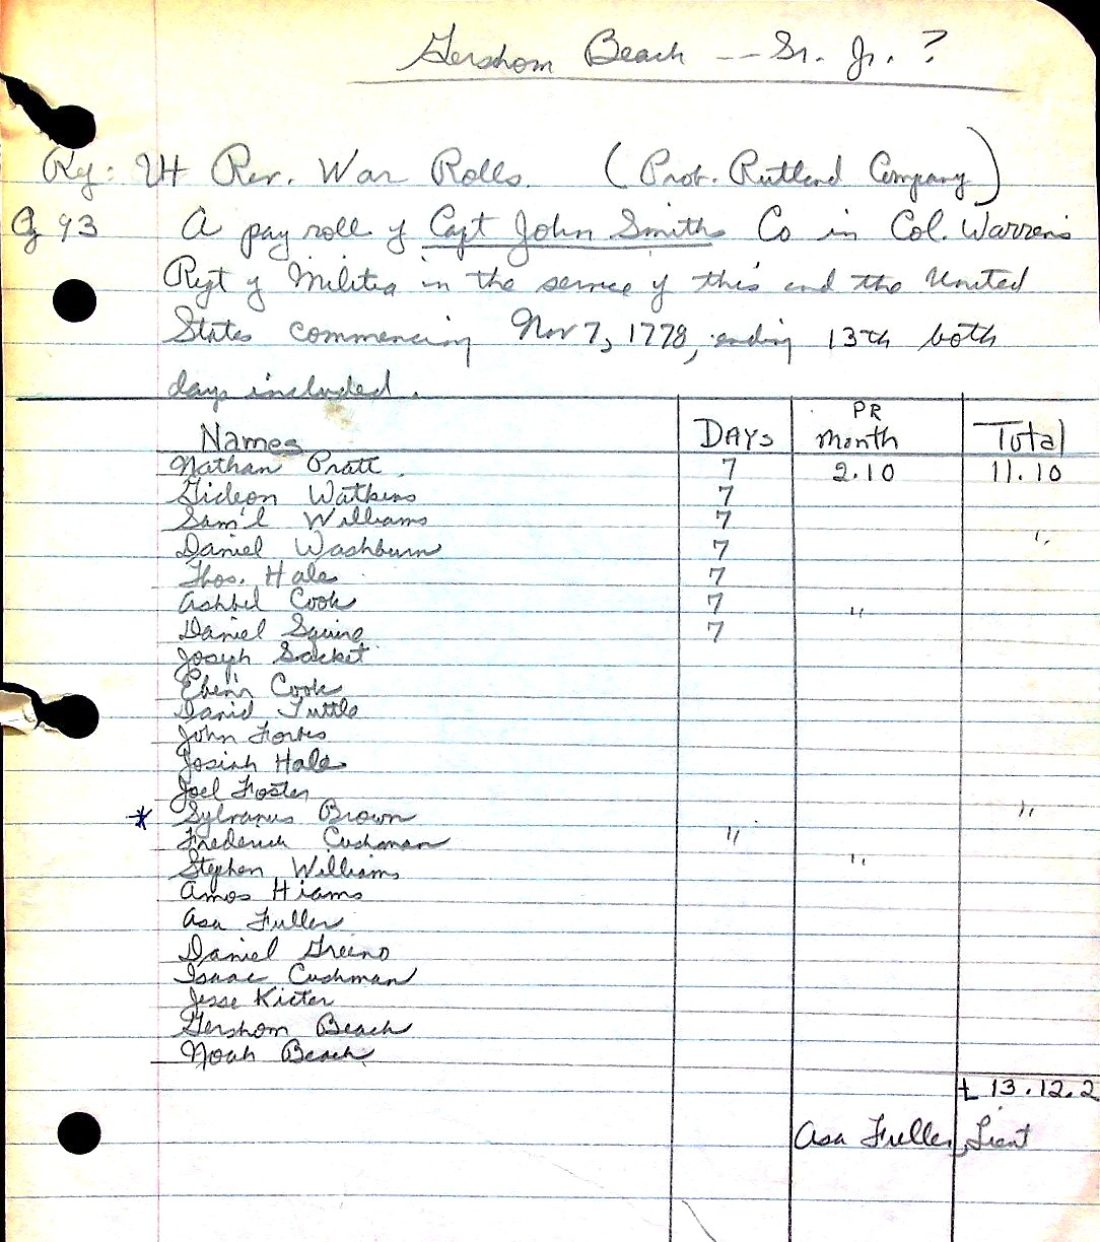 Gershom Beach -- Sr. Jr. ?
Ref: Vt Rev. War Rolls. (Prob. Rutland Company)
Pg 93 A pay roll of Capt John Smiths Co in Col. Warrens
Regt of Militia in the service of this and the United
States commencing Nov 7, 1778, ending 13th both
days included.
Names DAYS PR Month Total
Nathan Pratt 7 2.10 11.10
Gideon Watkins 7
Sam'l Williams 7
Daniel Washburn 7 "
Thos. Hale 7
Ashbel Cook 7 "
Daniel Squire 7
Joseph Sacket
Eben'r Cook
David Tuttle
John Forbs
Josiah Hale
Joel Foster
* Sylvanus Brown "
Frederick Cushman "
Stephen Williams "
Amos Hiams
Asa Fuller
Daniel Greeno
Isaac Cushman
Jesse Kieter
Gershom Beach
Noah Beach
£ 13.12.2
Asa Fuller, Lieut